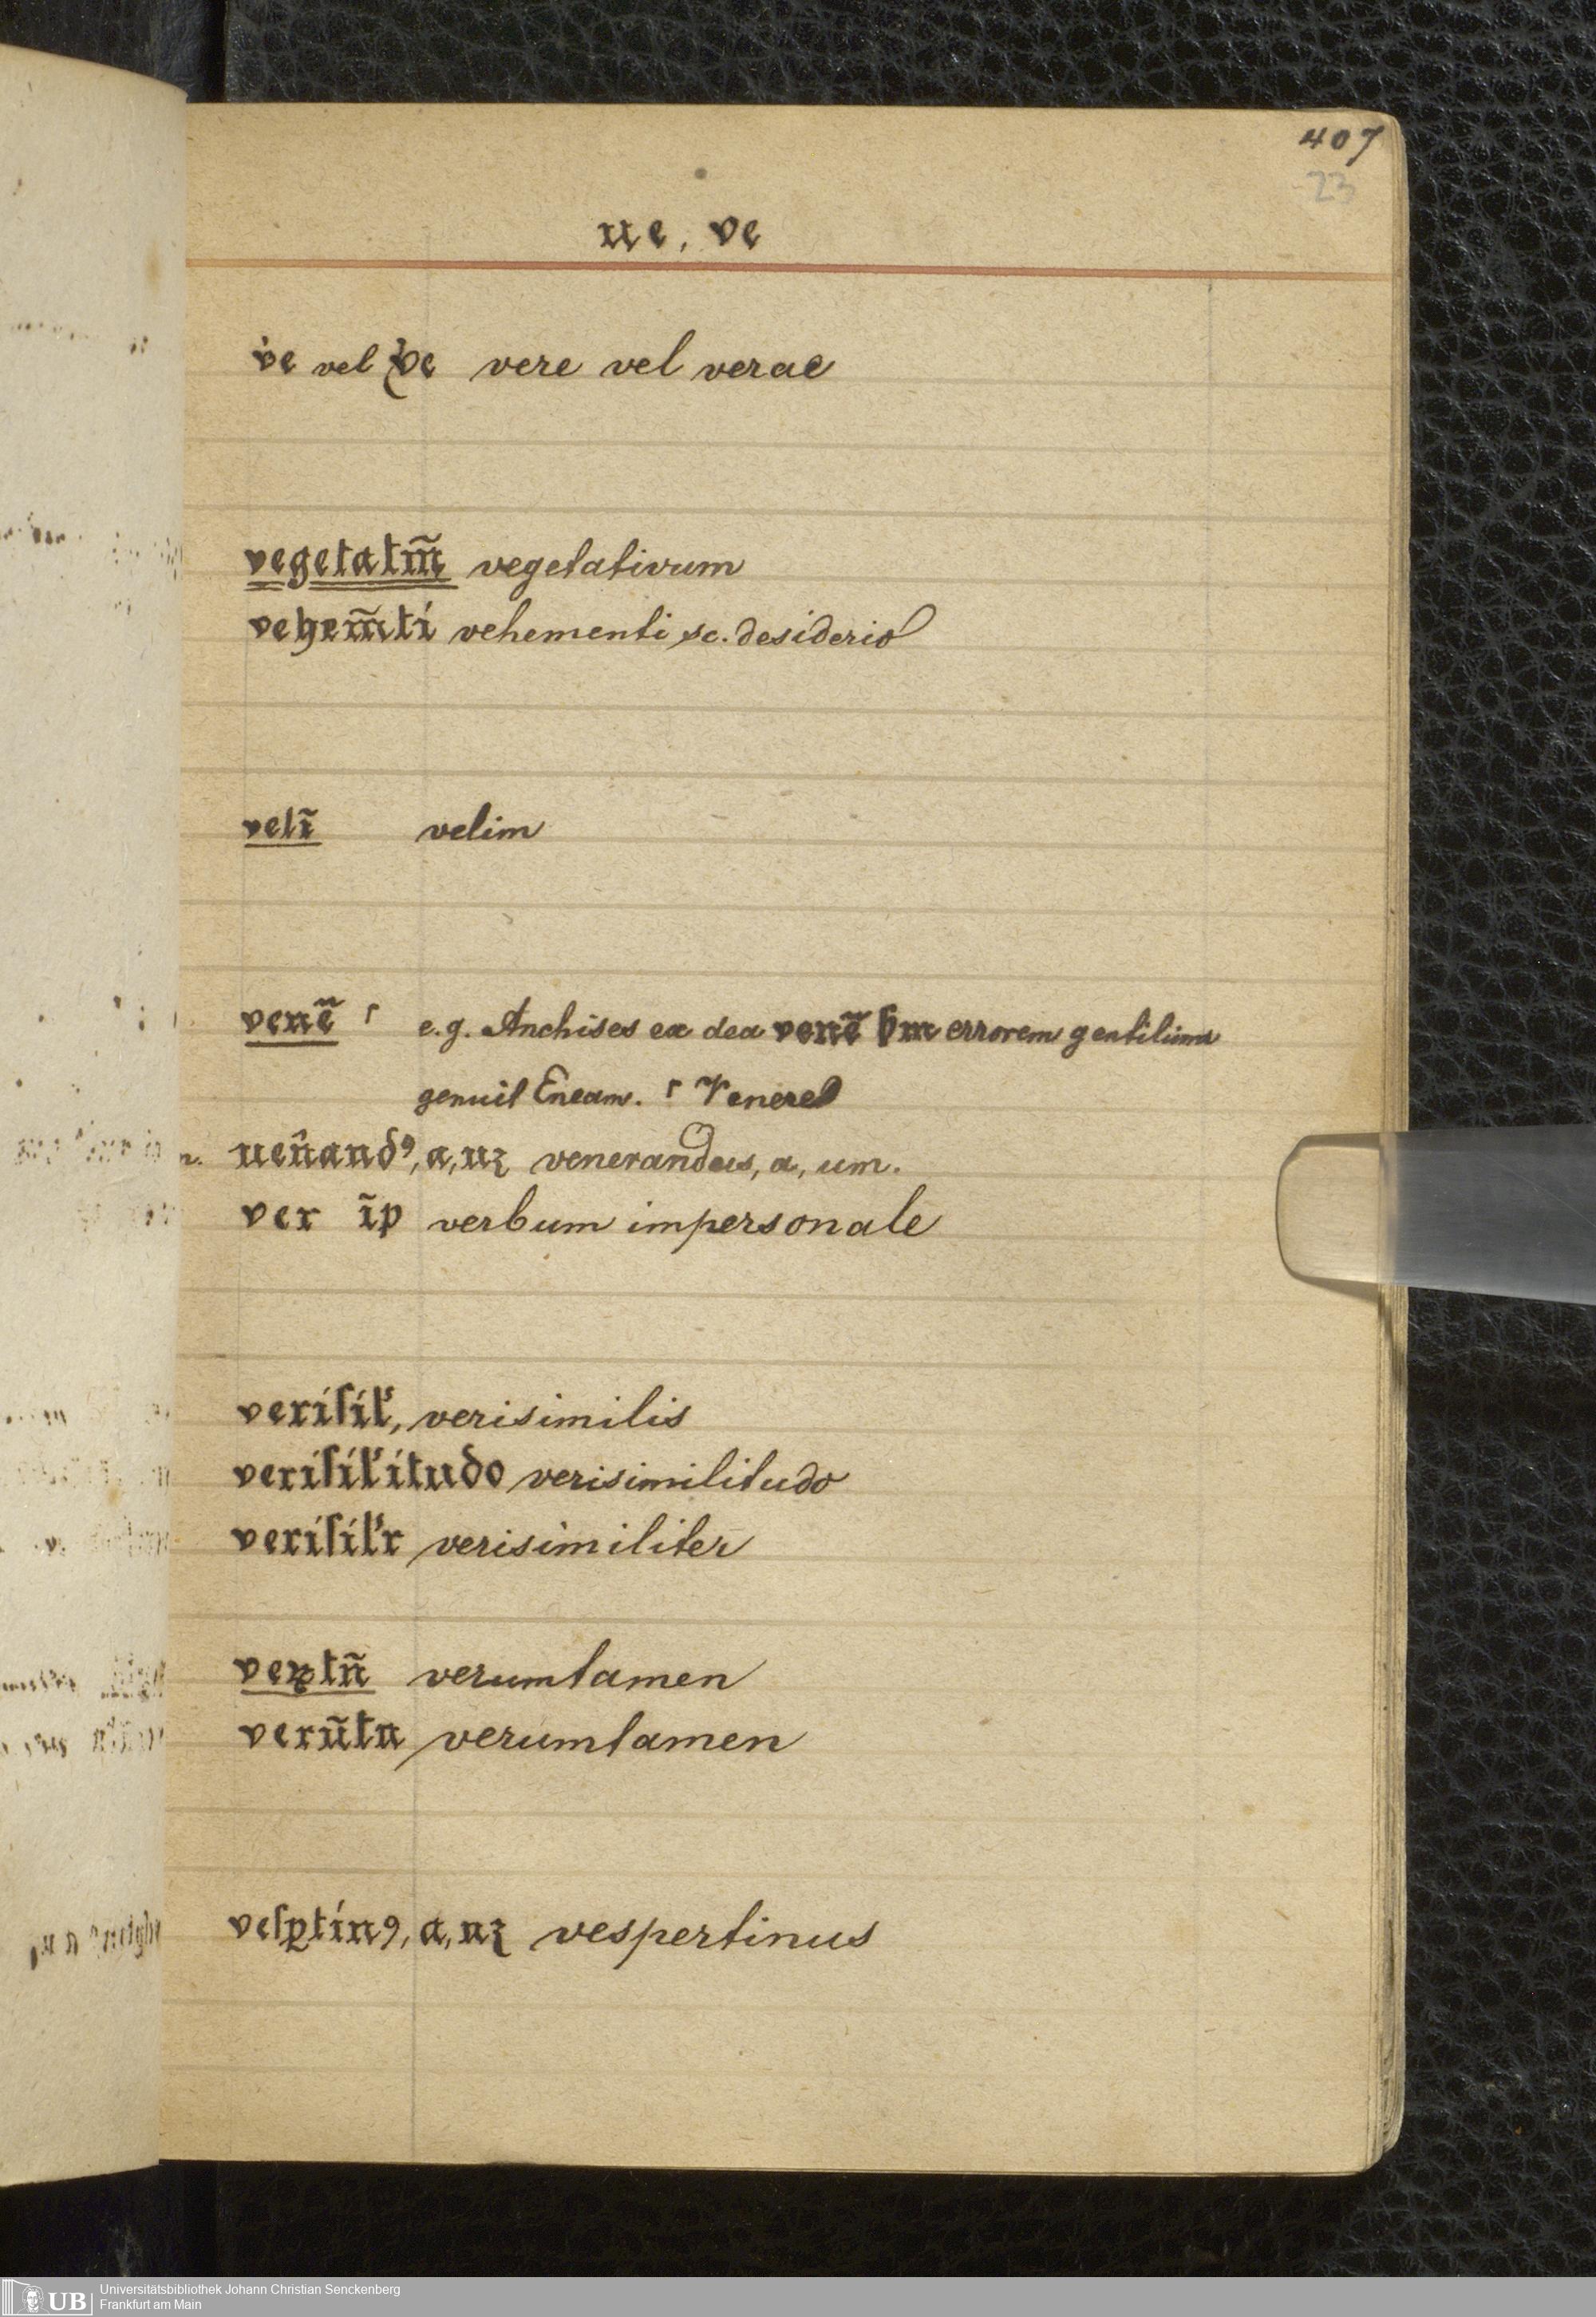 407
23
ue, ve
v̇e vel v̾e vere vel verae
vegetatm̃ vegetativum
vehem̃ti vehementi sc. desiderio
velĩ velim
venẽ ┌ e.g. Anchises ex dea venẽ ẜm errorem gentilium
genuit Eneam. ┌ Venere
ueñandꝰ, a, uꝫ venerandus, a, um.
ver ĩp verbum impersonale
verisil̛, verisimilis
verisil̛itudo verisimilitudo
verisil̛r verisimiliter
veꝝtñ verumtamen
verũtn verumtamen
vesꝑtinꝰ, a, uꝫ vespertinus
UB Universitätsbibliothek Johann Christian Senckenberg
Frankfurt am Main